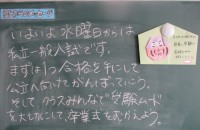 いよいよ水曜日からは
私立一般入試です。
まずは1つ合格を手にして
公立へ向けてがんばっていこう。
そして クラスみんなで 受験ムード
を大切にして、卒業式をむかえよう。